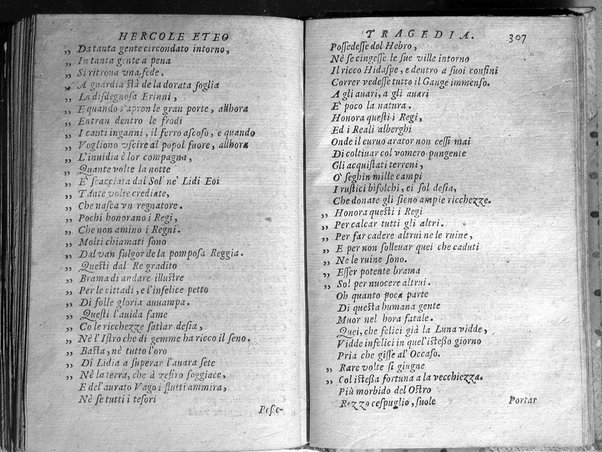 HERCOLE ETEO
„ Da tanta gente circondato intorno,
„ In tanta gente a pena
„ Si ritroua vna fede.
„ A guardia stà de la dorata soglia
„ La disdegnosa Erinni,
„ E quando s'apron le gran porte, allhora
„ Entran dentro le frodi
„ I cauti inganni, il ferro ascoso, e quando
„ Vogliono vscire al popol fuore, allhora
„ L'inuidia è lor compagna,
„ Quante volte la notte
„ E' scacciata dal Sol ne' Lidi Eoi
„ Tante volte crediate,
„ Che nasca vn regnatore.
„ Pochi honorano i Regi,
„ Che non amino i Regni.
„ Molti chiamati sono
„ Dal van fulgor de la pomposa Reggia.
„ Questi dal Re gradito
„ Brama di andare illustre
„ Per le cittadi, e l'infelice petto
„ Di folle gloria auuampa.
„ Questi l'auida fame
„ Co le ricchezze satiar desia,
„ Nè l'Istro che di gemme ha ricco il seno.
„ Basta, nè tutto l'oro
„ Di Lidia a superar l'auara sete
„ Nè la terra, che à zefiro soggiace,
E del'aurato Vago i flutti ammira,
Nè se tutti i tesori
Posse-
TRAGEDIA. 307
Possedesse del Hebro,
Nè se cingesse le sue ville intorno
Il ricco Hidaspe, e dentro a suoi confini
Correr vedesse tutto il Gange immenso.
A gli auari, a gli auari
E' poco la natura.
Honora questi i Regi,
Ed i Reali alberghi
Onde il curuo arator non cessi mai
Di coltiuar col vomero pungente
Gli acquistati terreni,
O' seghin mille campi
I rustici bifolchi, ei sol desia,
Che donate gli sieno ampie ricchezze.
„ Honora questi i Regi
„ Per calcar tutti gli altri.
„ Per far cadere altrui ne le ruine,
„ E per non solleuar quei che caduti
„ Ne le ruine sono.
„ Esser potente brama
„ Sol per nuocere altrui.
Oh quanto poca parte
Di questa humana gente
Muor nel hora fatale.
Quei, che felici già la Luna vidde,
Vidde infelici in quel'istesso giorno
Pria che gisse al'Occaso.
„ Rare volte si giugne
„ Col istessa fortuna a la vecchiezza.
Più morbido del Ostro
Rezzo cespuglio, suole
Portar